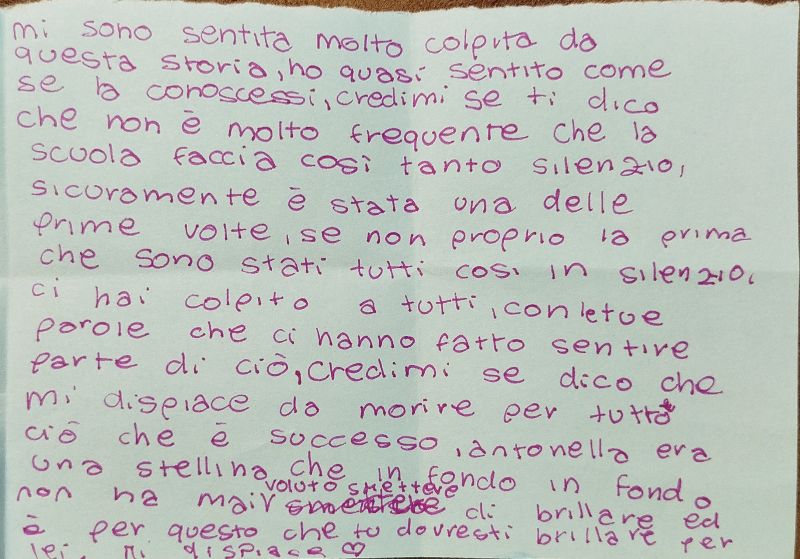 mi sono sentita molto colpita da
questa storia, ho quasi sentito come
se la conoscessi, credimi se ti dico
che non è molto frequente che la
scuola faccia così tanto silenzio,
sicuramente è stata una delle
prime volte, se non proprio la prima
che sono stati tutti così in silenzio,
ci hai colpito a tutti, con le tue
parole che ci hanno fatto sentire
parte di ciò, credimi se dico che
mi dispiace da morire per tutto
ciò che è successo, antonella era
una stellina che in fondo in fondo
non ha mai voluto smettere di brillare ed
è per questo che tu dovresti brillare per
lei. mi dispiace ♡